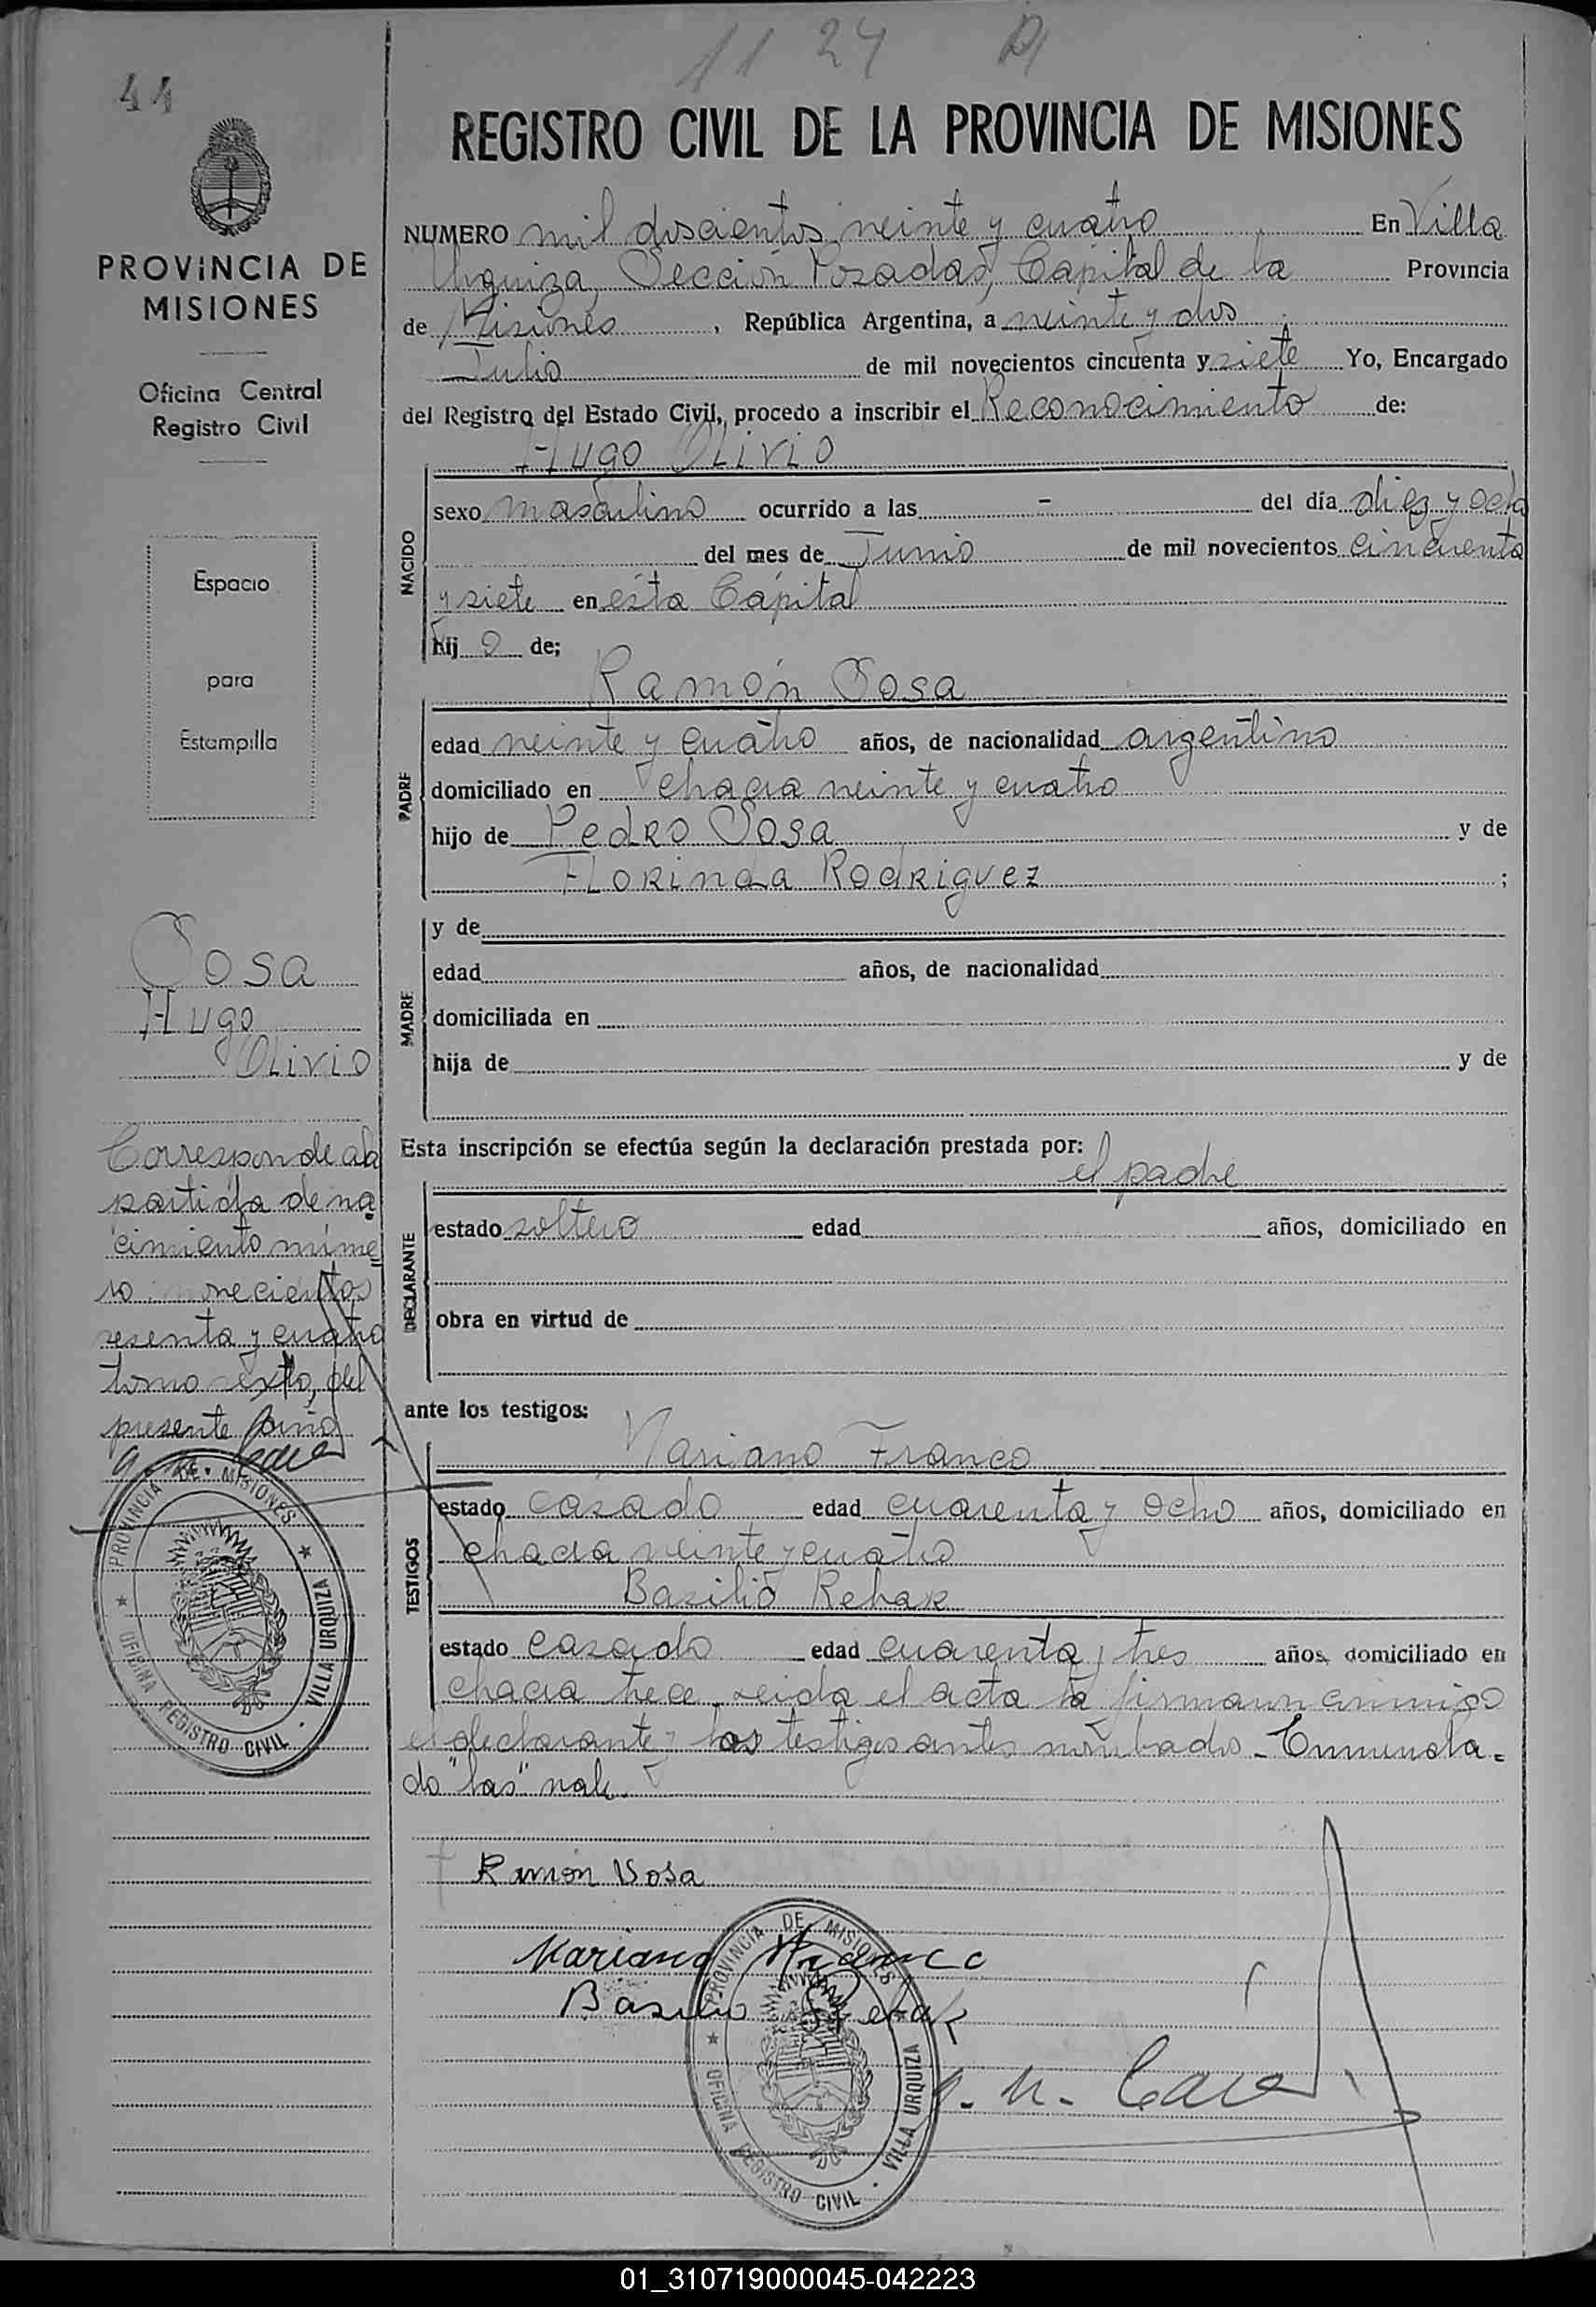 44
11 24
REGISTRO CIVIL DE LA PROVINCIA DE MISIONES
PROVINCIA DE
MISIONES
Oficina Central
Registro Civil
Espacio
para
Estampilla
Sosa
Hugo
Olivio
Corresponde a la
partida de na
cimiento núme
ro novecientos
sesenta y cuatro
tomo sexto, del
presente año
PROVINCIA DE MISIONES
OFICINA REGISTRO CIVIL · VILLA URQUIZA
NUMERO mil doscientos veinte y cuatro En Villa
Urquiza, Sección Posadas, Capital de la Provincia
de Misiones, República Argentina, a veinte y dos
Julio de mil novecientos cincuenta y siete Yo, Encargado
del Registro del Estado Civil, procedo a inscribir el Reconocimiento de:
Hugo Olivio
NACIDO
sexo masculino ocurrido a las - del día diez y ocho
del mes de Junio de mil novecientos cincuenta
y siete en esta Cápital
hij o de;
Ramón Sosa
PADRE
edad veinte y cuatro años, de nacionalidad argentino
domiciliado en chacra veinte y cuatro
hijo de Pedro Sosa y de
Florinda Rodriguez ;
MADRE
y de
edad años, de nacionalidad
domiciliada en
hija de y de
Esta inscripción se efectúa según la declaración prestada por:
el padre
DECLARANTE
estado soltero edad años, domiciliado en
obra en virtud de
ante los testigos:
Mariano Franco
TESTIGOS
estado casado edad cuarenta y ocho años, domiciliado en
chacra veinte y cuatro
Basilio Rehak
estado casado edad cuarenta y tres años, domiciliado en
chacra trece. Leida el acta la firmaron conmigo
el declarante y los testigos antes nombrados - Enmenda=
do "las" vale.
Ramón Sosa
Mariano Franco
Basilio Rehak
PROVINCIA DE MISIONES
OFICINA REGISTRO CIVIL · VILLA URQUIZA
01_310719000045-042223